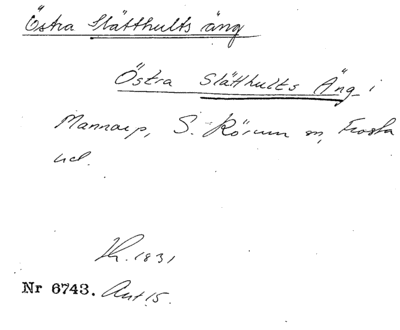 Östra Slätthults äng
Östra Slätthults Äng i
Mannarp, S. Rörum sn, Frosta
hd.
1831
Nr 6743. Akt 15.